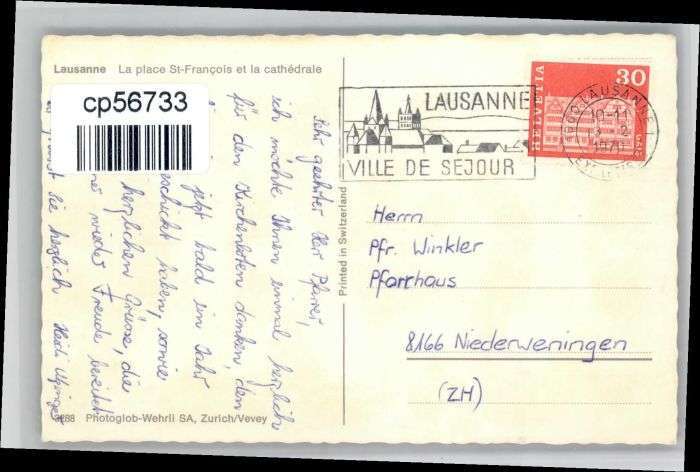 Lausanne La place St-François et la cathédrale
cp56733
Sehr geehrter Herr Pfarrer,
ich möchte Ihnen einmal herzlich
für den Kirchenboten danken, den
jetzt bald ein Jahr
schickt haben, sowie
herzlichen Grüsse, die
wieder Freude bereiten
Sie herzlich Heidi
Photoglob-Wehrli SA, Zurich/Vevey
Printed in Switzerland
LAUSANNE
VILLE DE SEJOUR
HELVETIA
30
LAUSANNE
10-11
1970
Herrn
Pfr. Winkler
Pfarrhaus
8166 Niederweningen
(ZH)